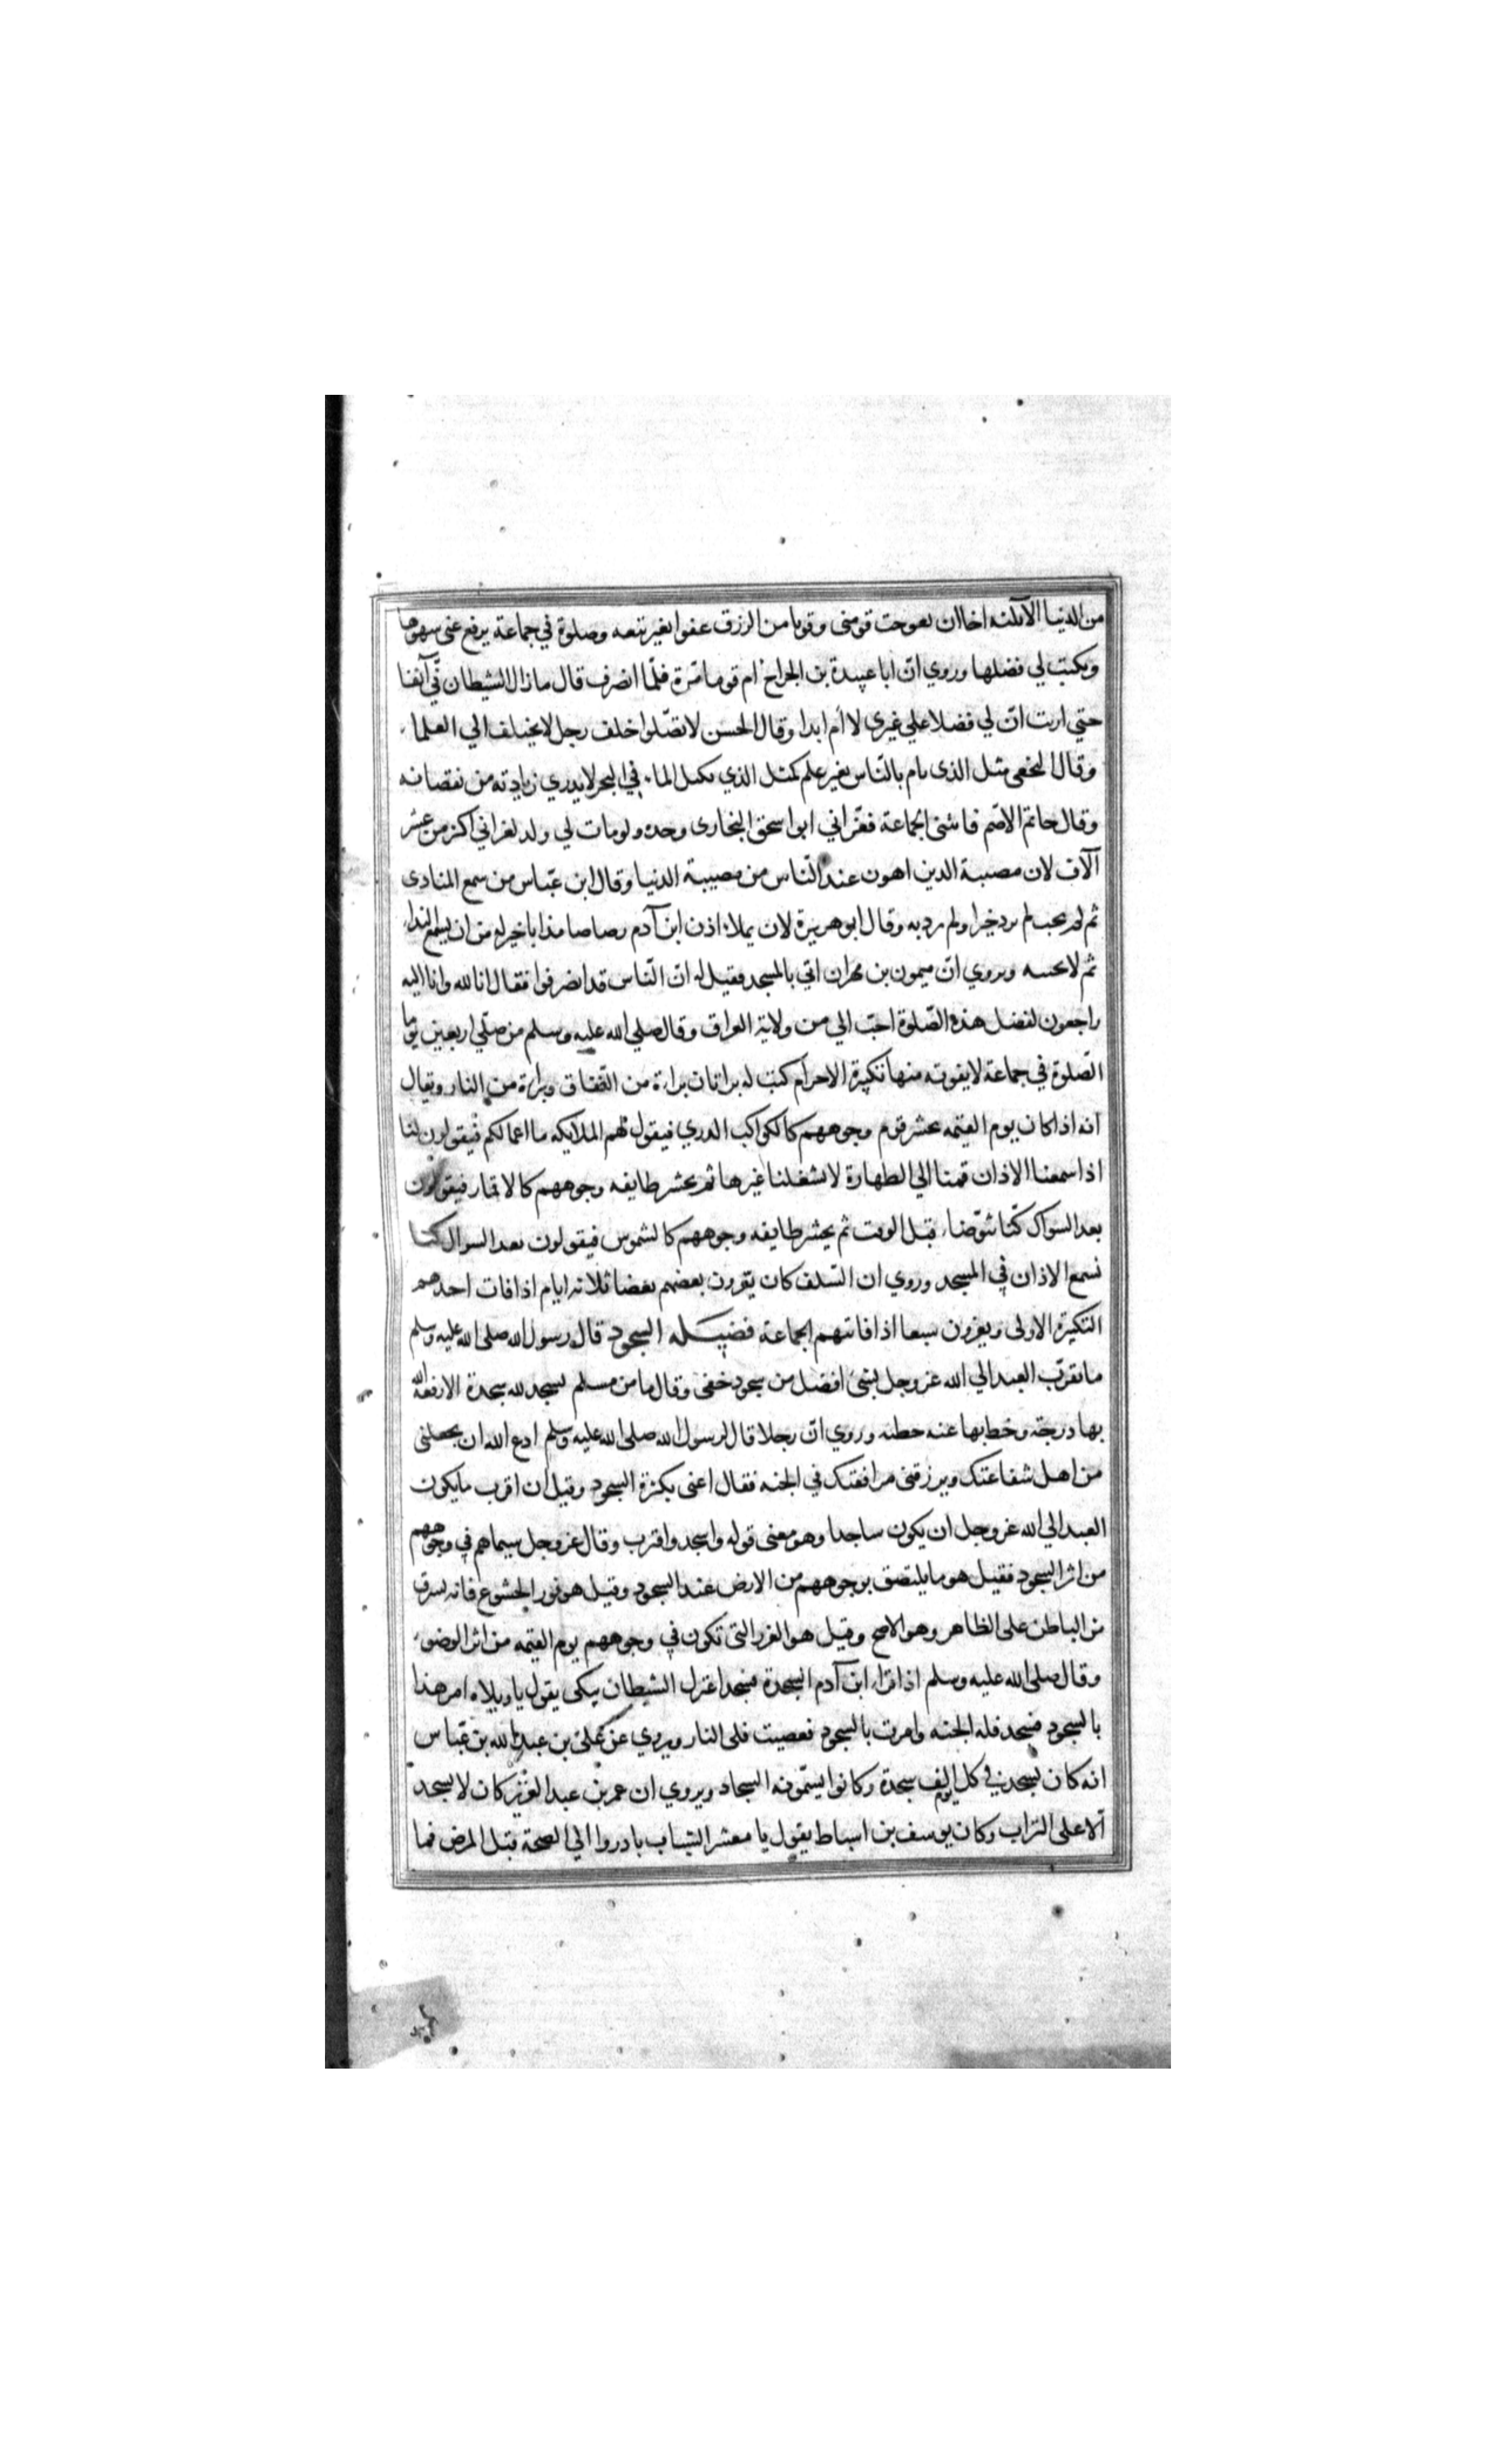 من الدنيا الا ثلثه اخا ان تعوجت قومنى وقوتا من الرزق عفوا بغير تبعه وصلوة في جماعة يرفع عنى سهوها
ويكتب لي فضلها وروي انّ ابا عبيدة بن الجراح امّ قوما مّرة فلمّا انصرف قال ما زال الشيطان بي آنفا
حتي اريت انّ لي فضلا علي غيرى لا أم ابدا وقال الحسن لا تصّلوا خلف رجل لا يختلف الي العلماء
وقال النخعى مثل الذى يام بالنّاس بغير علم كمثل الذي يكيل الماء في البحر لا يدري زيادته من نقصانه
وقال حاتم الاصّم فاتنى الجماعة فعّزاني ابو اسحق البخارى وحده ولو مات لي ولد لعزاني اكثر من عشر
آلاف لان مصيبة الدين اهون عند النّاس من مصيبة الدنيا وقال ابن عبّاس من سمع المنادى
ثم لم يجب لم يرد خيرا ولم يرد به وقال ابو هريرة لان يملاء اذن ابن آدم رصاصا مذابا خير له من ان يسمع النداء
ثم لا يجيبه ويروي انّ ميمون بن مهران اتي بالمسجد فقيل له انّ النّاس قد انصرفوا فقال انا لله وانا اليه
راجعون لفضل هذه الصّلوة احبّ الي من ولاية العراق وقال صلي الله عليه وسلم من صلّي اربعين يوما
الصّلوة في جماعة لا يفوته منها تكبيرة الاحرام كتب له براتان براءة من النّفاق وبراءة من النار ويقال
انه اذا كان يوم القيمه يحشر قوم وجوههم كالكواكب الدري فيقول لهم الملايكه ما اعمالكم فيقولون كنا
اذا سمعنا الاذان قمنا الي الطهارة لا يشغلنا غيرها ثم يحشر طايفه وجوههم كالاقمار فيقولون
بعد السوال كنّا نتوّضاء قبل الوقت ثم يحشر طايفه وجوههم كالشموس فيقولون بعد السوال كنا
نسمع الاذان في المسجد وروي ان السّلف كان يعّزون بعضهم بعضا ثلاثه ايام اذا فات احدهم
التكبيرة الاولى ويعزون سبعا اذا فاتتهم الجماعة فضيله السجود قال رسول الله صلى الله عليه وسلم
ما تقرّب العبد الي الله عز وجل بشئ افضل من سجود خفى وقال ما من مسلم يسجد لله سجدة الا رفعه الله
بها درجة وحط بها عنه خطئه وروي انّ رجلا قال لرسول الله صلى الله عليه وسلم ادع الله ان يجعلنى
من اهل شفاعتك ويرزقنى مرافقتك في الجنه فقال اعنى بكثرة السجود وقيل ان اقرب ما يكون
العبد الي الله عز وجل ان يكون ساجدا وهو معنى قوله واسجد واقترب وقال عز وجل سيماهم في وجوههم
من اثر السجود فقيل هو ما يلتصق بوجوههم من الارض عند السجود وقيل هو نور الخشوع فانه يشرق
من الباطن على الظاهر وهو الاصح وقيل هو الغرر التى تكون في وجوههم يوم القيمه من اثر الوضوء
وقال صلى الله عليه وسلم اذا قراء ابن آدم السجدة فسجد اعتزل الشيطان يبكى يقول يا ويلاه امر هذا
بالسجود فسجد فله الجنه وامرت بالسجود فعصيت فلى النار ويروي عن على بن عبد الله بن عبّاس
انه كان يسجد في كل يوم الف سجدة وكانوا يسّمونه السجاد ويروي ان عمر بن عبد العزيز كان لا يسجد
الّا على التراب وكان يوسف بن اسباط يقول يا معشر الشباب بادروا الي الصحة قبل المرض فما